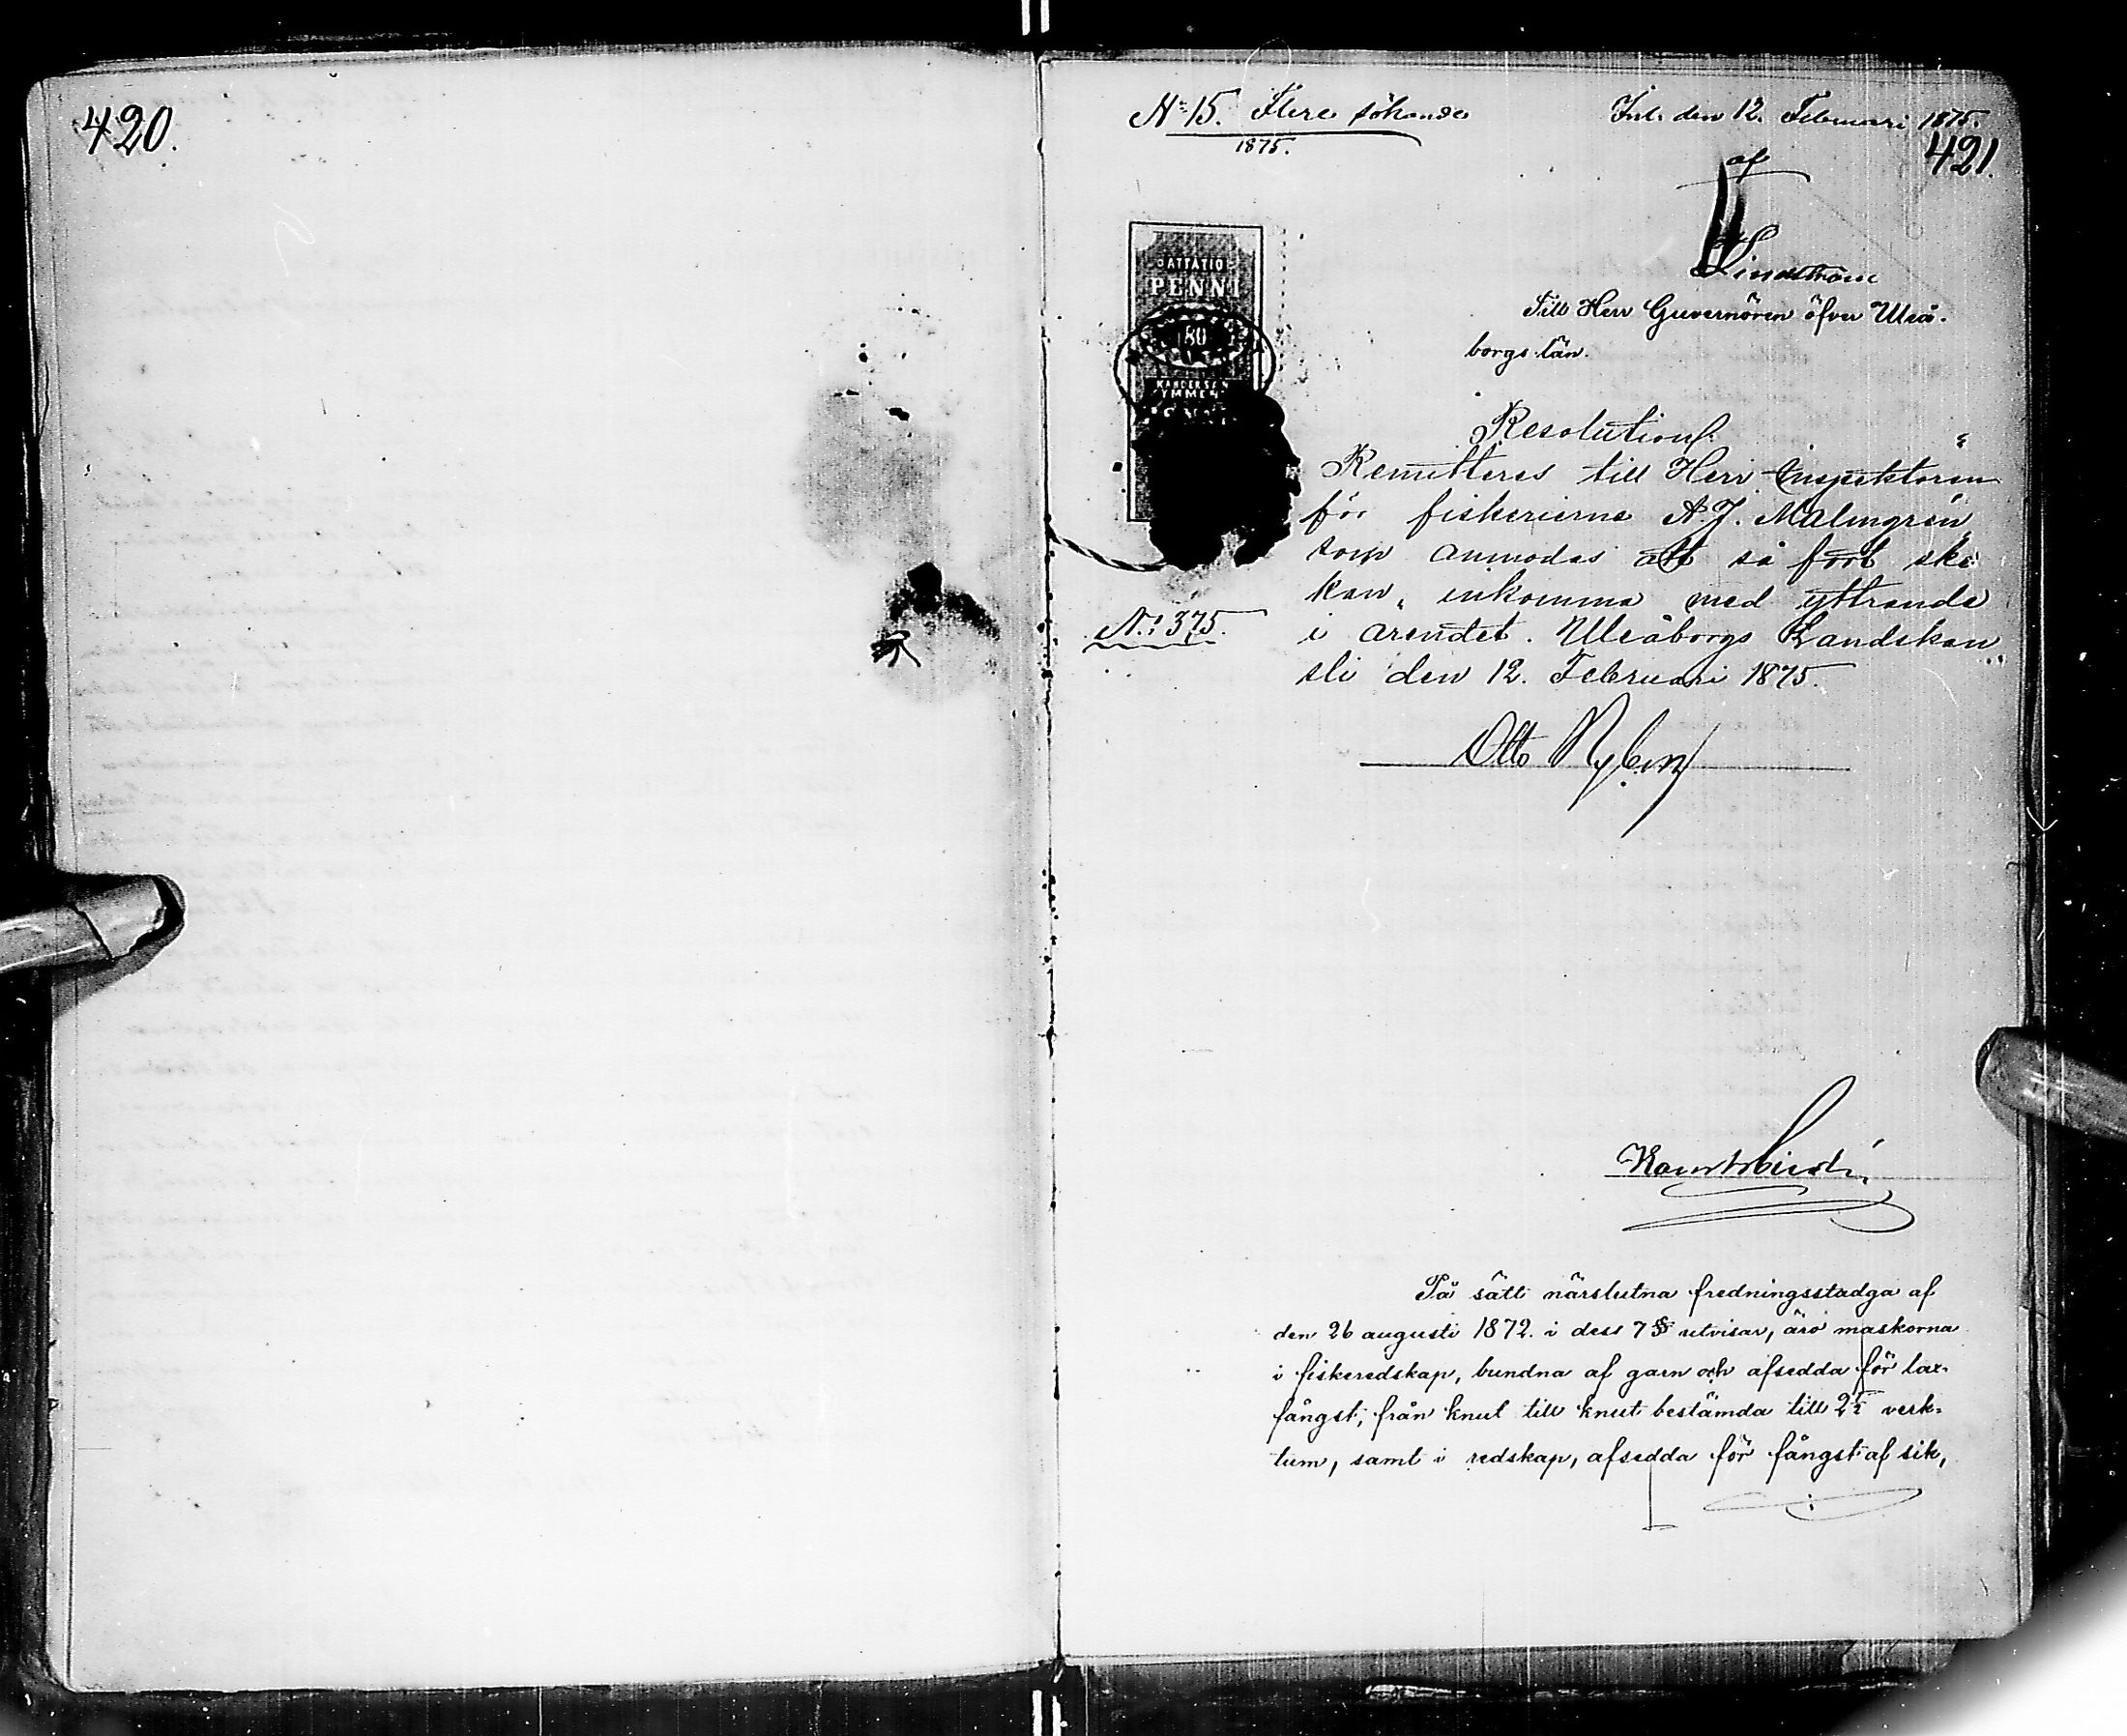 420.
No 15. Flere sökande
1875.
Inl. den 12. Februari 1875.
421.
af
Lindström
DATTATIO
PENNI
80
Till Herr Guvernören öfver Uleå-
borgs län.
Resolution.
Remitteras till Herr Inspektoren
för fiskerierne A. J. Malmgrén,
som anmodas att så fort ske
kan, inkomma med yttrande
i ärendet. Uleåborgs Landskan
sli den 12. Februari 1875.
No: 375.
Otto Nyberg
På sätt närslutna fredningsstadga af
den 26 augusti 1872. i dess 7 § utvisar, äro maskorna
i fiskeredskap, bundna af garn och afsedda för lax-
fångst, från knut till knut bestämda till 2½ verk-
tum, samt i redskap, afsedda för fångst af sik,